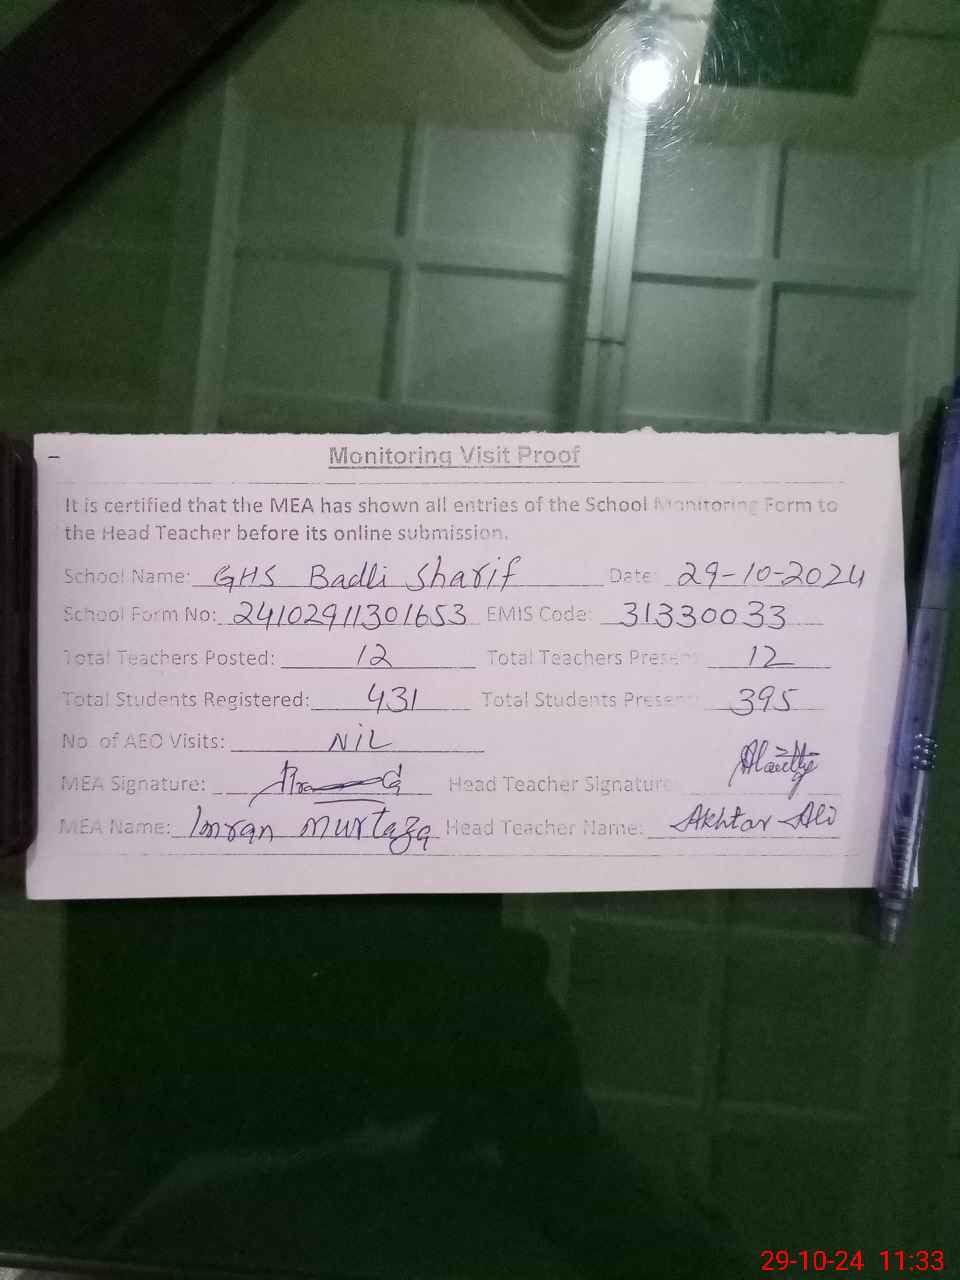 Monitoring Visit Proof
It is certified that the MEA has shown all entries of the School Monitoring Form to
the Head Teacher before its online submission.
School Name: GHS Badli Sharif Date: 29-10-2024
School Form No: 24102911301653 EMIS Code: 31330033
Total Teachers Posted: 12 Total Teachers Present 12
Total Students Registered: 431 Total Students Present 395
No. of AEO Visits: NIL
MEA Signature: Head Teacher Signature
MEA Name: Imran Murtaza Head Teacher Name: Akhtar Ali
29-10-24 11:33